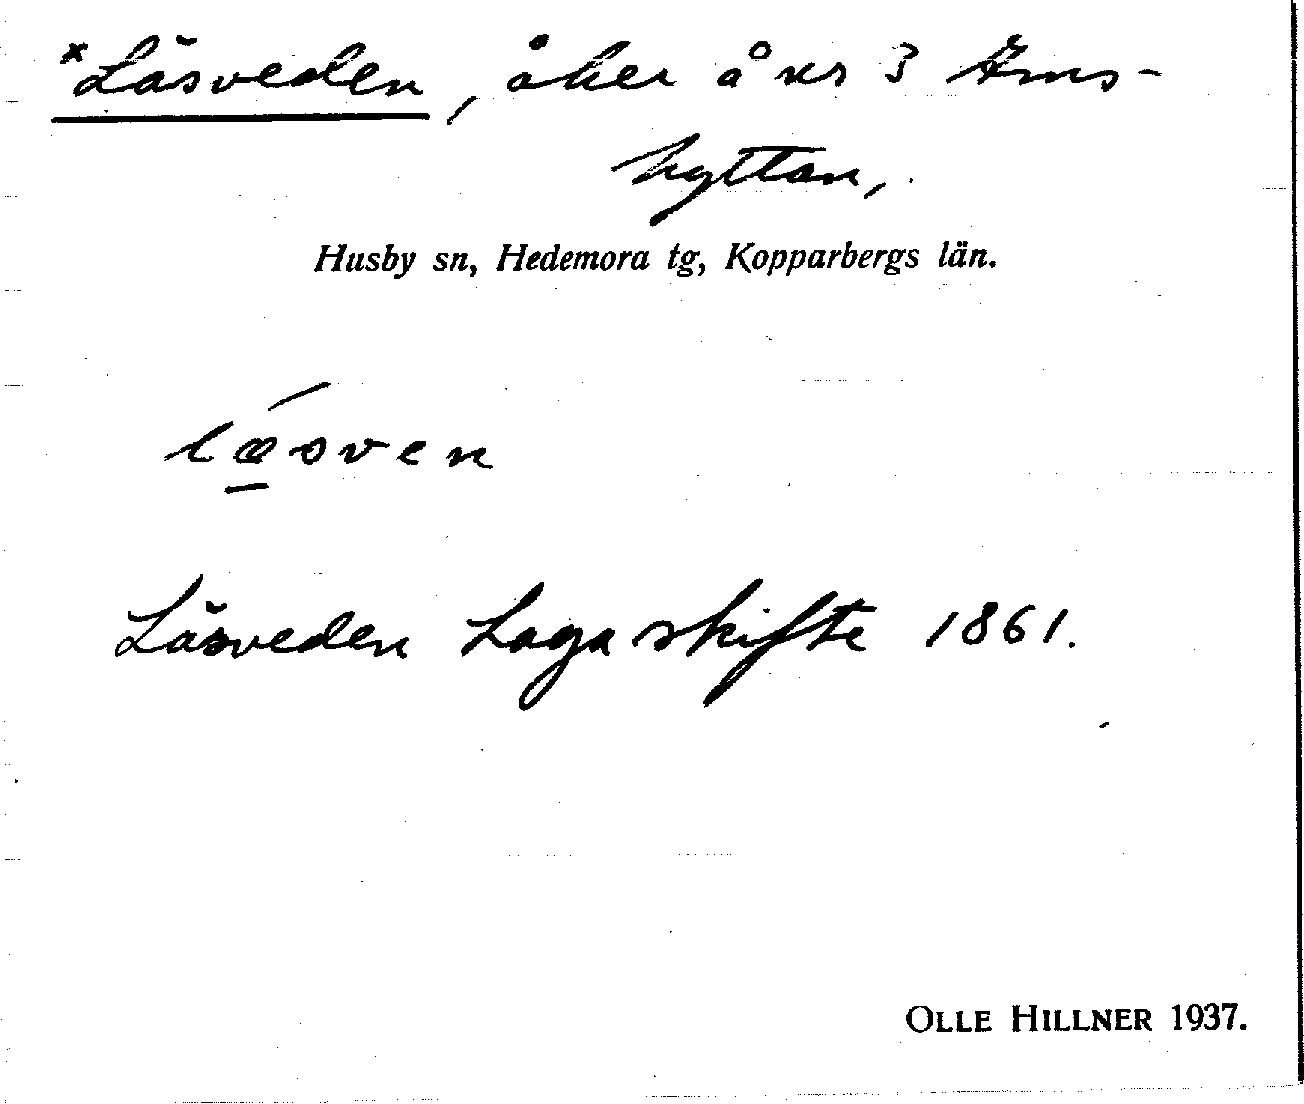 *Läsveden, åker å nr 3 Ims-
hyttan,
Husby sn, Hedemora tg, Kopparbergs län.
læsven
Läsveden Laga skifte 1861.
OLLE HILLNER 1937.